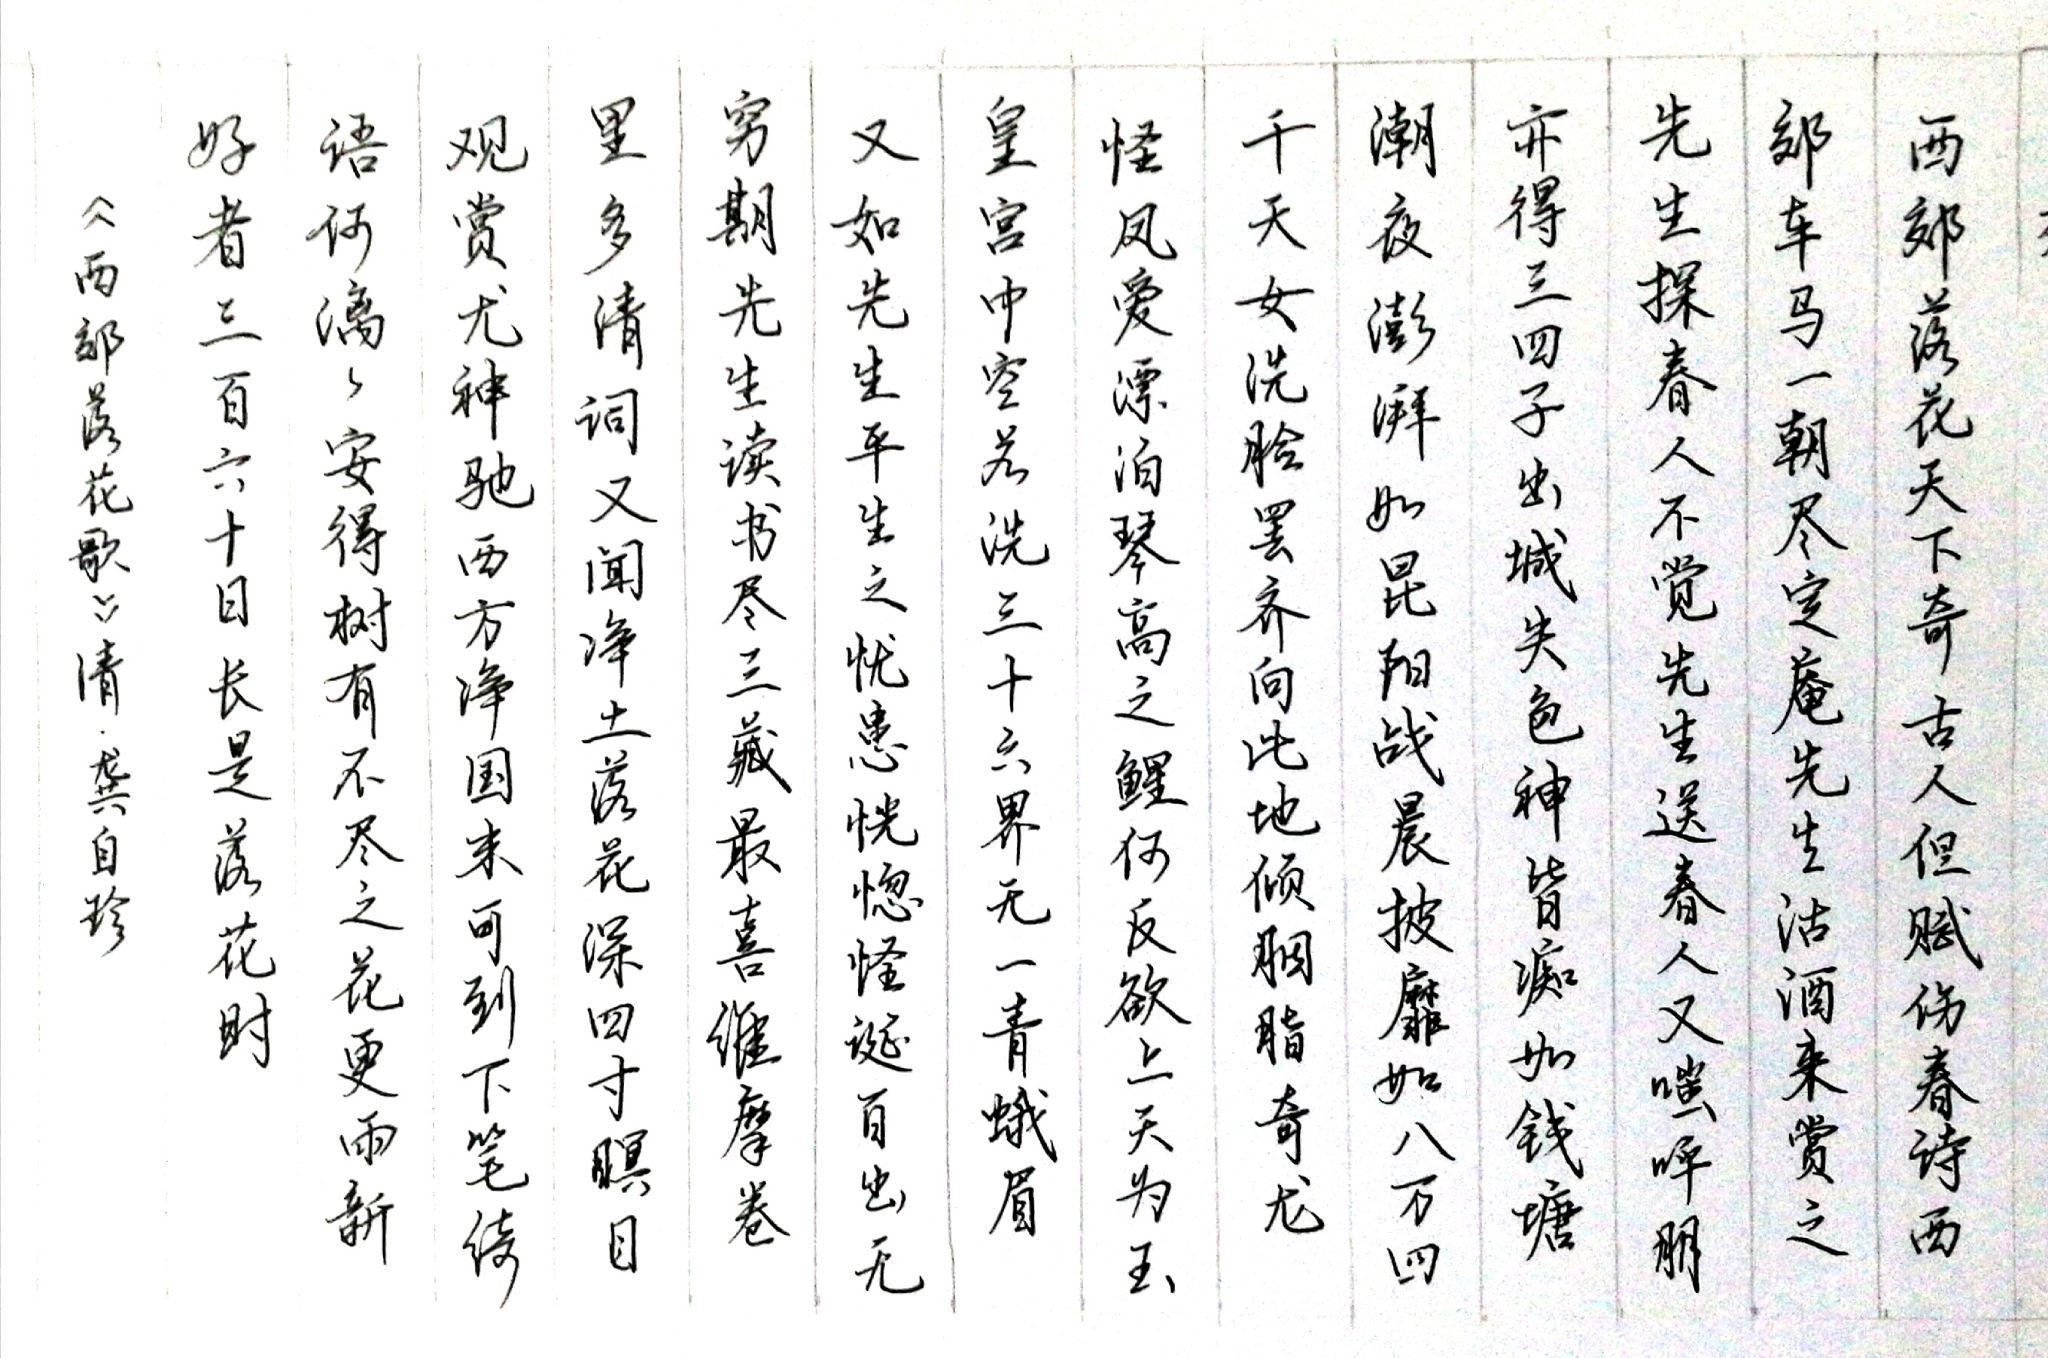 西郊落花天下奇古人但赋伤春诗西
郊车马一朝尽定庵先生沽酒来赏之
先生探春人不觉先生送春人又嗤呼朋
亦得三四子出城失色神皆痴如钱塘
潮夜澎湃如昆阳战晨披靡如八万四
千天女洗脸罢齐向此地倾胭脂奇龙
怪凤爱漂泊琴高之鲤何反欲上天为玉
皇宫中空若洗三十六界无一青蛾眉
又如先生平生之忧患恍惚怪诞百出无
穷期先生读书尽三藏最喜维摩卷
里多清词又闻净土落花深四寸瞑目
观赏尤神驰西方净国未可到下笔绮
语何漓〻安得树有不尽之花更雨新
好者三百六十日长是落花时
《西郊落花歌》清·龚自珍